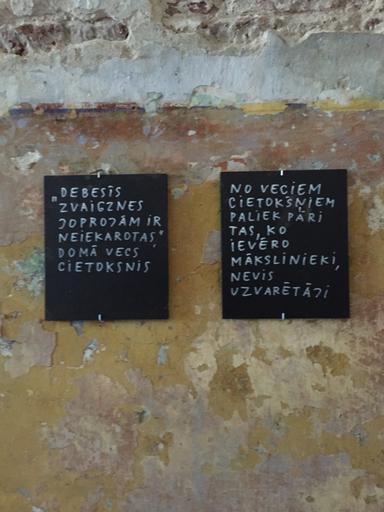 DEBESĪS
"ZVAIGZNES
JOPROJĀM IR
NEIEKAROTAS,"
DOMĀ VECS
CIETOKSNIS
NO VECIEM
CIETOKŠŅIEM
PALIEK PĀRI
TAS, KO
IEVĒRO
MĀKSLINIEKI,
NEVIS
UZVARĒTĀJI